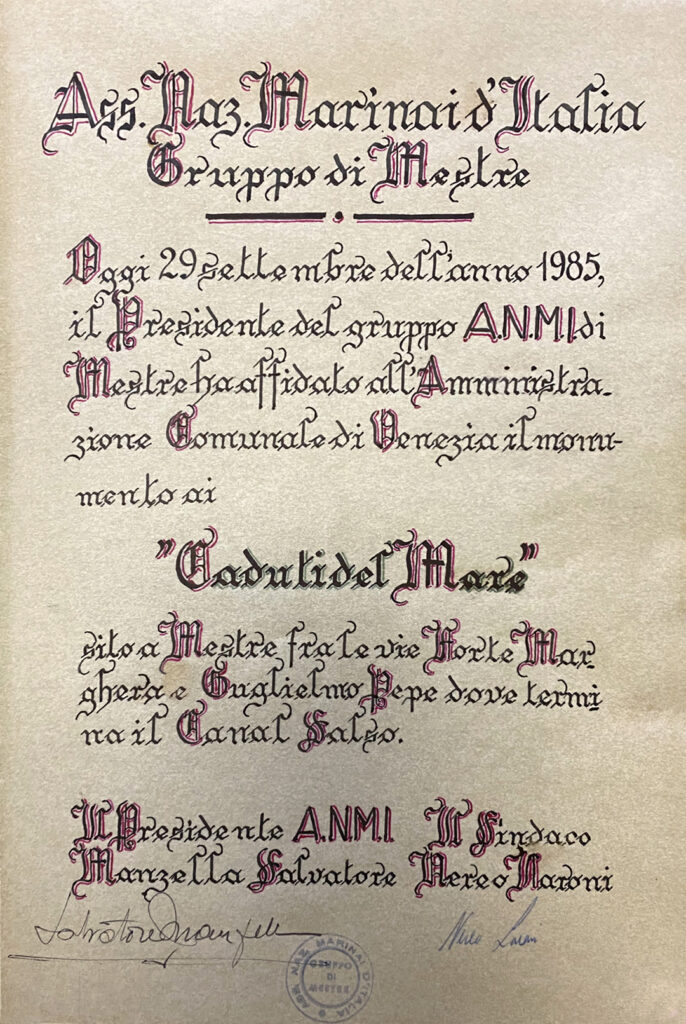 Ass. Naz. Marinai d'Italia
Gruppo di Mestre
Oggi 29 settembre dell'anno 1985,
il Presidente del gruppo A.N.M.I di
Mestre ha affidato all'Amministra-
zione Comunale di Venezia il monu-
mento ai
"Caduti del Mare"
sito a Mestre fra le vie Forte Mar
ghera e Guglielmo Pepe dove termi
na il Canal Salso.
Il Presidente A.N.M.I Il Sindaco
Manzella Salvatore Nereo Laroni
Salvatore Manzella
Nereo Laroni
ASS. NAZ. MARINAI D'ITALIA
GRUPPO
DI
MESTRE